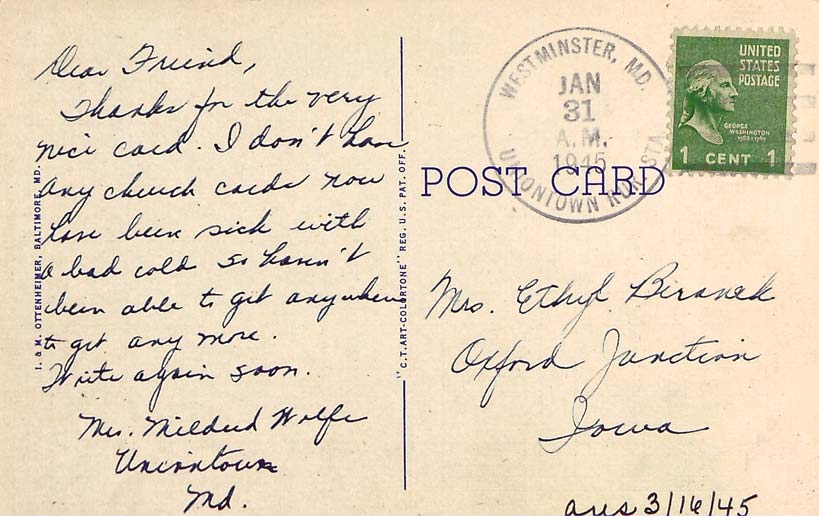 Dear Friend,
Thanks for the very
nice card. I don't have
any church cards now
have been sick with
a bad cold so haven't
been able to get anywhere
to get any more.
Write again soon.
Mrs. Mildred Wolfe
Uniontown
Md.
I. & M. OTTENHEIMER, BALTIMORE, MD.
"C.T. ART-COLORTONE" REG. U.S. PAT. OFF.
POST CARD
WESTMINSTER, MD.
JAN
31
A.M.
1945
UNIONTOWN RUR. STA.
UNITED
STATES
POSTAGE
GEORGE
WASHINGTON
1789-1797
1 CENT 1
Mrs. Ethyl Beranek
Oxford Junction
Iowa
ans 3/16/45